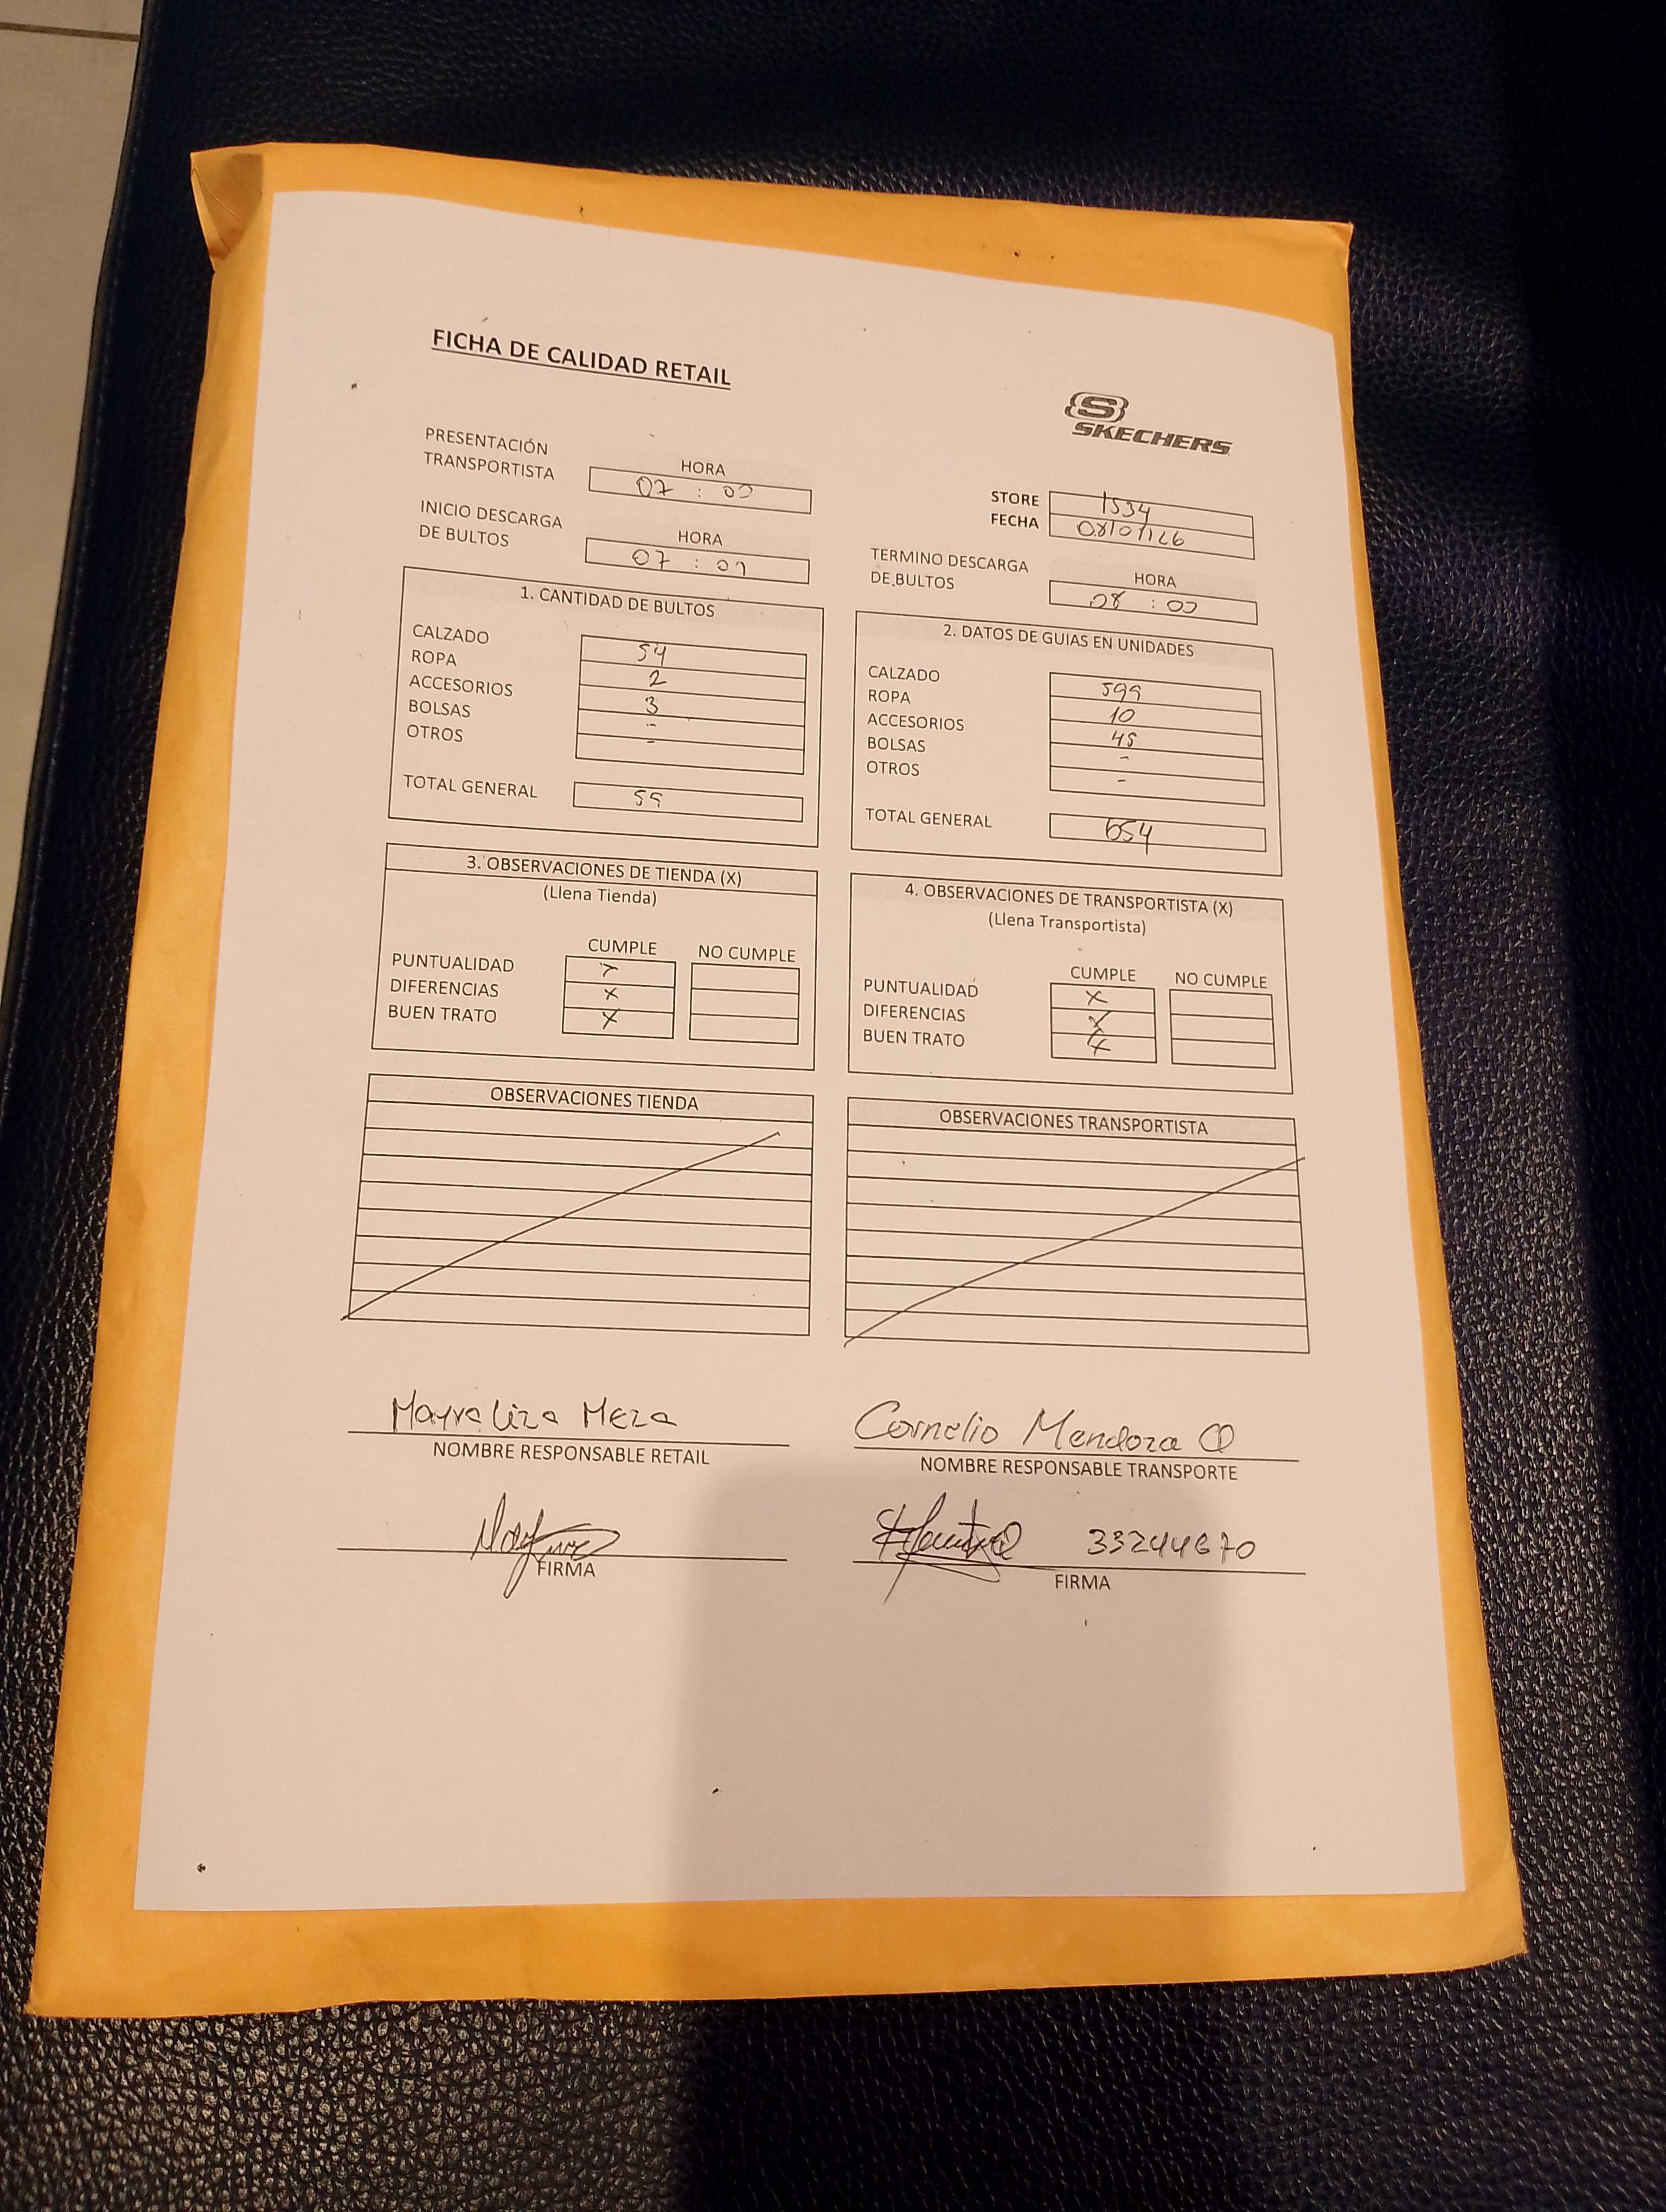 FICHA DE CALIDAD RETAIL
SKECHERS
PRESENTACIÓN
TRANSPORTISTA
HORA
07 : 00
STORE 1534
FECHA 08/01/26
INICIO DESCARGA
DE BULTOS
HORA
07 : 01
TERMINO DESCARGA
DE BULTOS
HORA
08 : 00
1. CANTIDAD DE BULTOS
CALZADO 54
ROPA 2
ACCESORIOS 3
BOLSAS -
OTROS -
TOTAL GENERAL 59
2. DATOS DE GUIAS EN UNIDADES
CALZADO 599
ROPA 10
ACCESORIOS 45
BOLSAS -
OTROS -
TOTAL GENERAL 654
3. OBSERVACIONES DE TIENDA (X)
(Llena Tienda)
CUMPLE NO CUMPLE
PUNTUALIDAD X
DIFERENCIAS X
BUEN TRATO X
4. OBSERVACIONES DE TRANSPORTISTA (X)
(Llena Transportista)
CUMPLE NO CUMPLE
PUNTUALIDAD X
DIFERENCIAS X
BUEN TRATO X
OBSERVACIONES TIENDA
OBSERVACIONES TRANSPORTISTA
Mayra Liza Meza
NOMBRE RESPONSABLE RETAIL
Cornelio Mendoza Q
NOMBRE RESPONSABLE TRANSPORTE
FIRMA
33244670
FIRMA